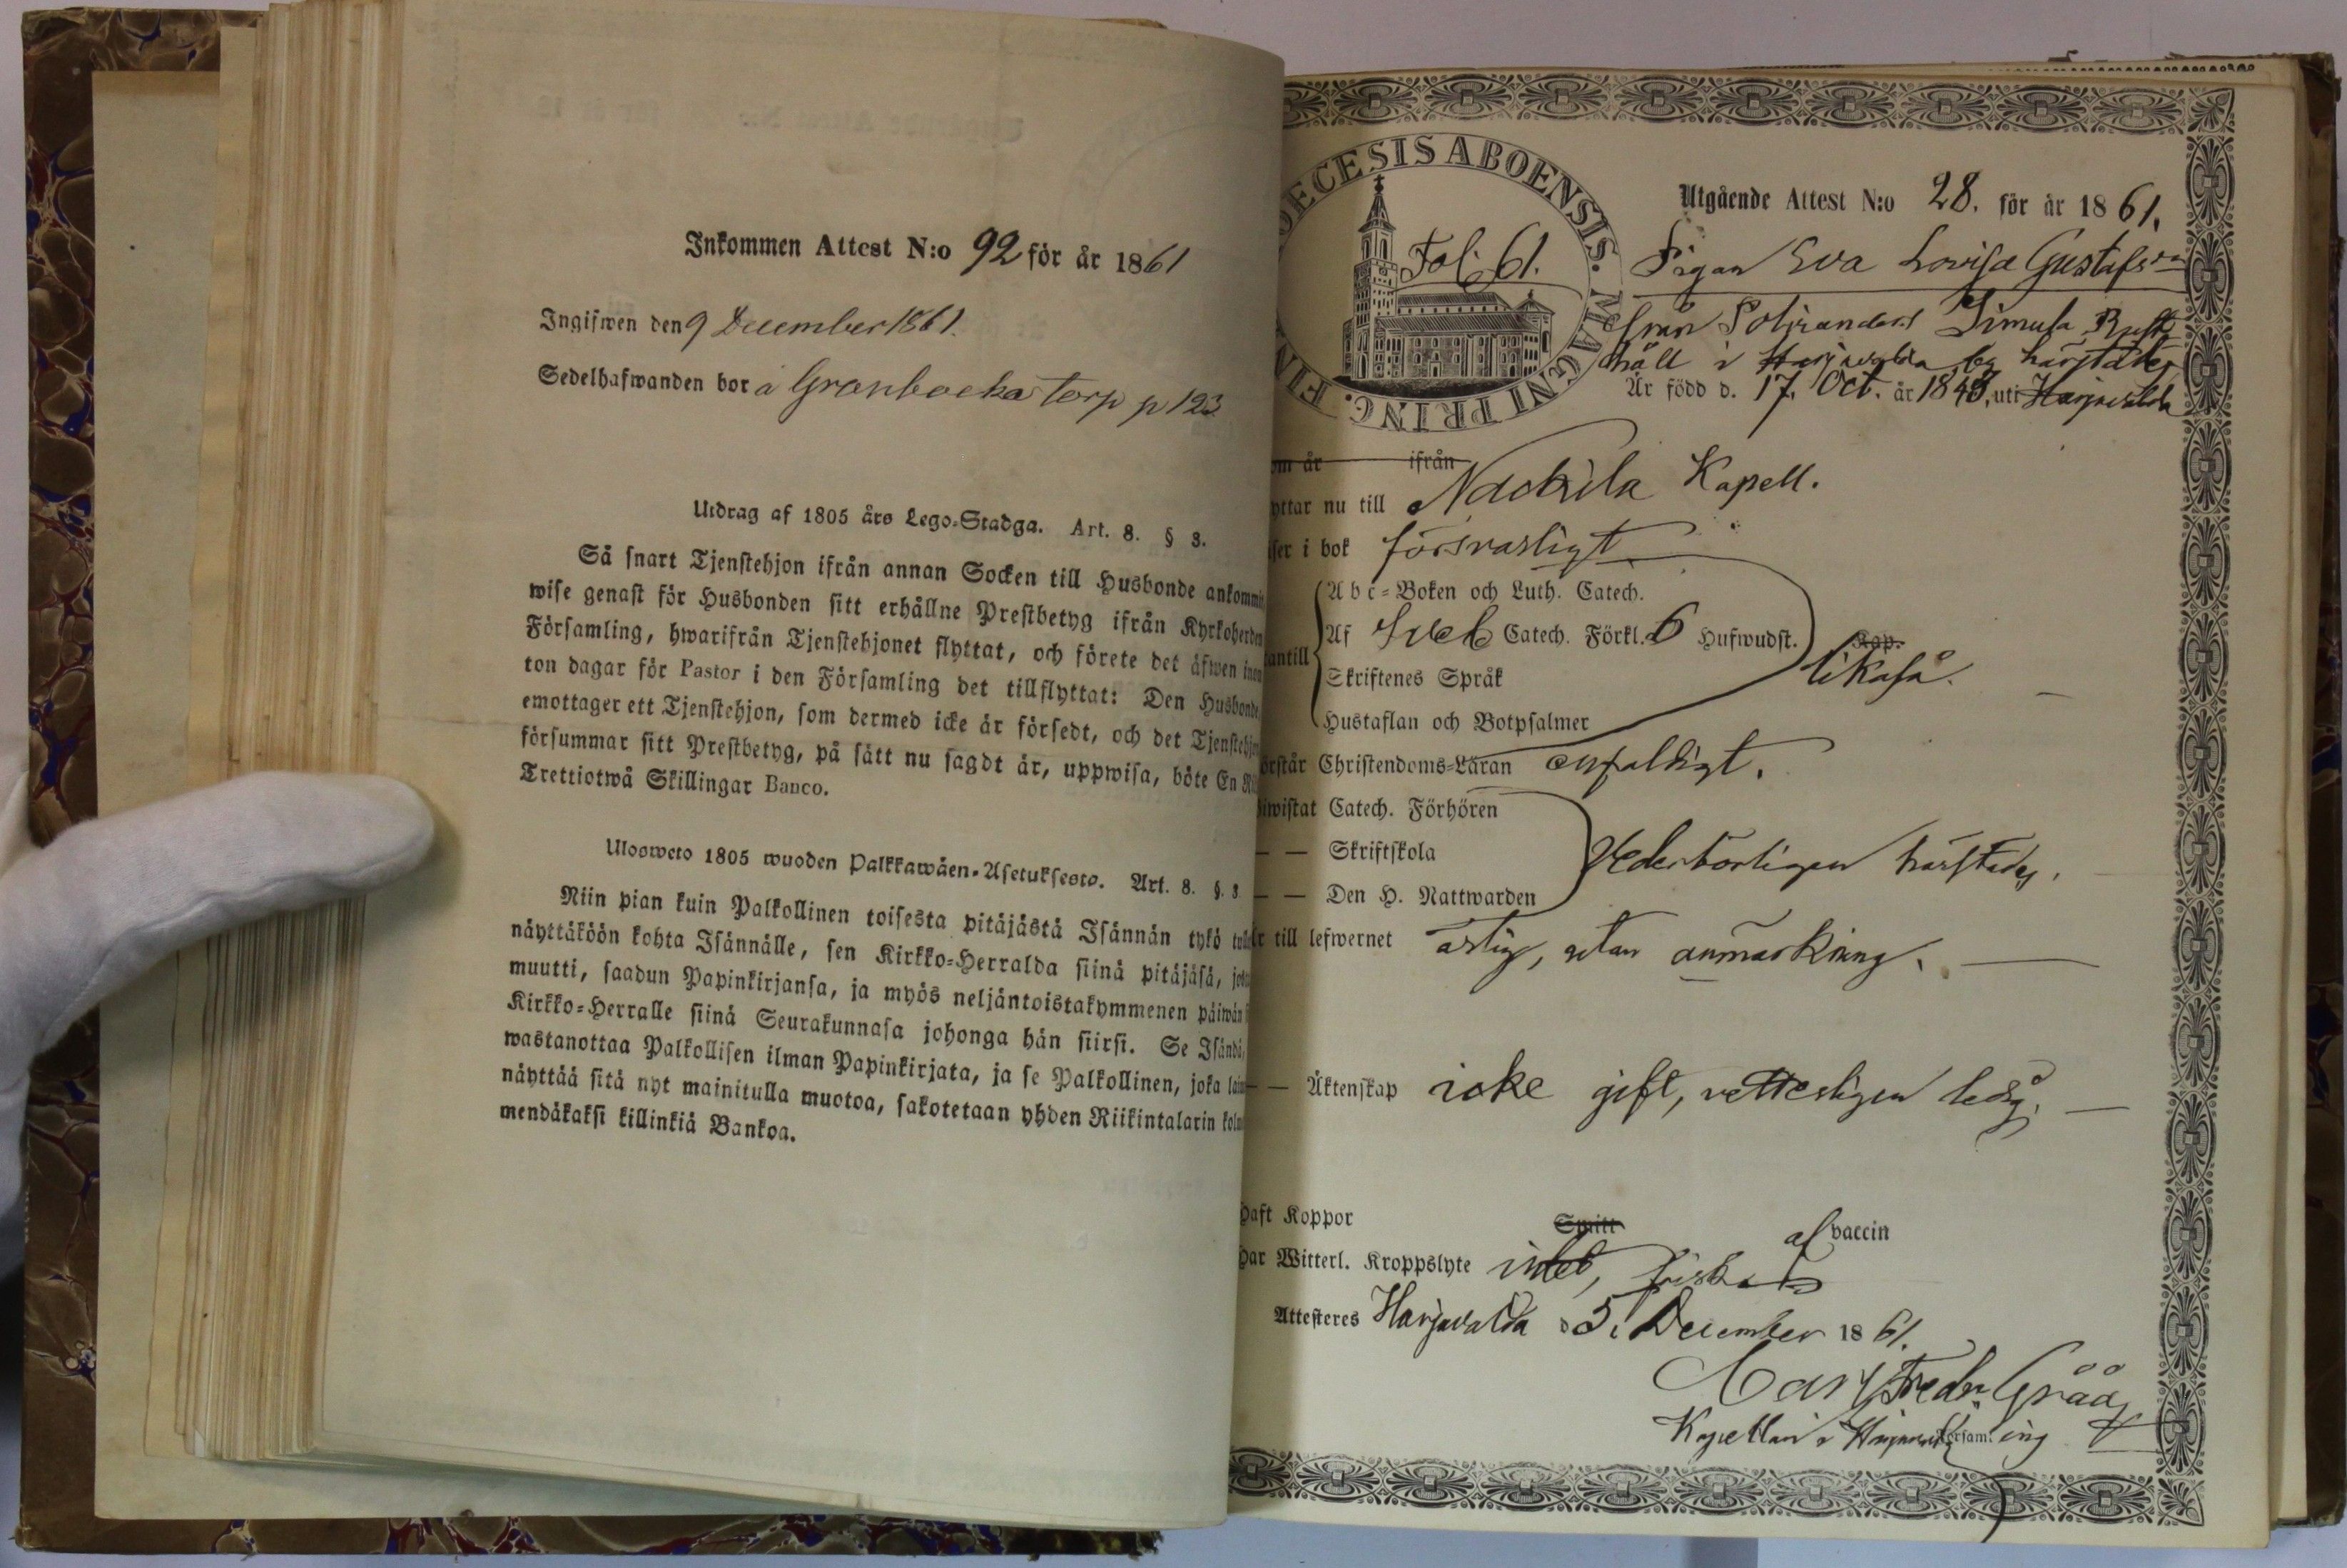 Inkommen Attest N:o 92 för år 1861
Ingifwen den 9 December 1861.
Sedelhafwanden bor å Granbacka torp p 123
Utdrag af 1805 års Lego-Stadga. Art. 8. § 3.
Så snart Tjenstehjon ifrån annan Socken till Husbonde ankommit
wise genast för Husbonden sitt erhållne Prestbetyg ifrån Kyrkoherden
Församling, hwarifrån Tjenstehjonet flyttat, och förete det äfwen inom
ton dagar för Pastor i den Församling det tillflyttat: Den Husbonde,
emottager ett Tjenstehjon, som dermed icke är försedt, och det Tjenstehjon
försummar sitt Prestbetyg, på sätt nu sagdt är, uppwisa, böte En Ri
Trettiotwå Skillingar Banco.
Ulosweto 1805 wuoden Palkkawäen-Asetuksesta. Art. 8. §. 3
Niin pian kuin Palkollinen toisesta pitäjästä Isännän tykö tul
näyttäköön kohta Isännälle, sen Kirkko-Herralda siinä pitäjäsä, josta
muutti, saadun Papinkirjansa, ja myös neljäntoistakymmenen päiwän
Kirkko-Herralle siinä Seurakunnasa johonga hän siirsi. Se Isändä,
wastanottaa Palkollisen ilman Papinkirjata, ja se Palkollinen, joka lai
näyttää sitä nyt mainitulla muotoa, sakotetaan yhden Riikintalarin kolm
mendäkaksi killinkiä Bankoa.
DECESIS ABOENSIS. MAGNI PRINC. FIN
Fol. 61.
Utgående Attest N:o 28. för år 1861.
Pigan Eva Lovisa Gustafsdr
från Simula Rust
håll i Harjavalda härstädes
Är född d. 17. Oct. år 1843, uti Harjavalda
om år ifrån
yttar nu till Nackila Kapell.
ser i bok försvarligt
Abc-Boken och Luth. Catech.
Af Sveb Catech. Förkl. 6 Hufwudst. Kap.
antill
likaså.
Skriftenes Språk
Hustaflan och Botpsalmer
örstår Christendoms-Läran enfaldigt.
iwistat Catech. Förhören
— — Skriftskola
Vederbörligen härstädes.
— — Den H. Nattwarden
r till lefwernet ärlig, utan anmärkning.
— — Äktenskap icke gift, ledig.
Haft Koppor Smitt af vaccin
Har Witterl. Kroppslyte intet, frisk
Attesteres Harjavalda d 5. December 1861.
Carl Fredr. Gråå
Kapellan i Harjavalda Församling